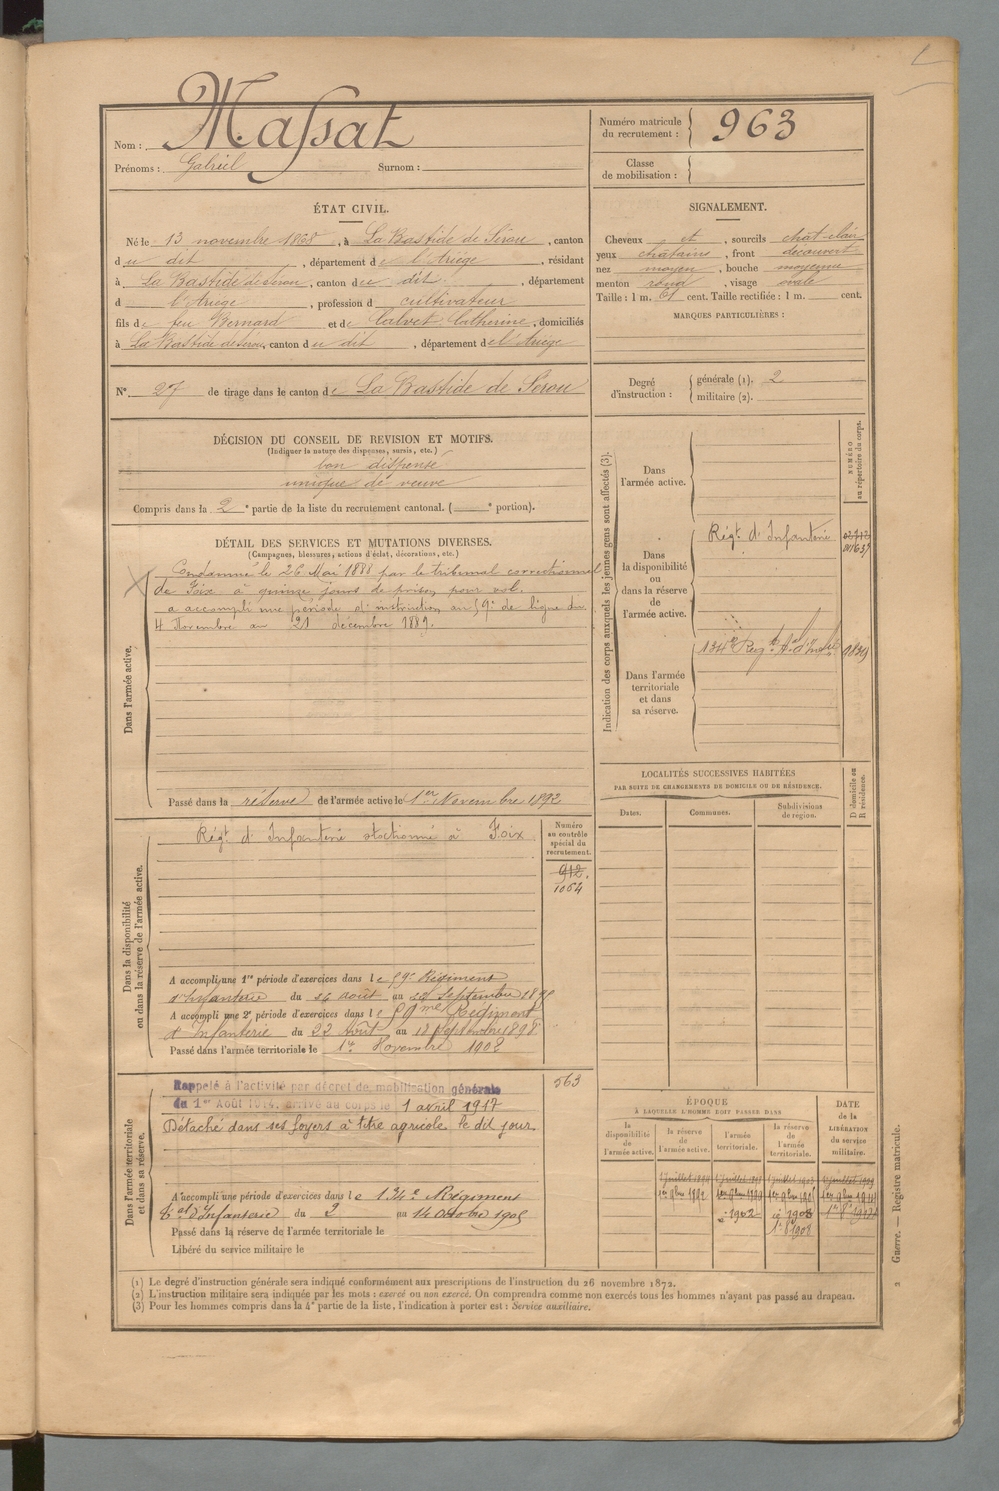 Nom : Massat
Prénoms : Gabriel Surnom :
Numéro matricule
du recrutement : 963
Classe
de mobilisation :
ÉTAT CIVIL.
Né le 13 novembre 1868, à La Bastide de Sérou, canton
du dit, département de l'Ariège, résidant
à La Bastide de Serou, canton du dit, département
d l'Ariège, profession d cultivateur
fils de feu Bernard et de Calvet Catherine, domiciliés
à La Bastide de Serou, canton du dit, département de l'Ariège
N° 27 de tirage dans le canton de La Bastide de Sérou
SIGNALEMENT.
Cheveux et, sourcils chat-clair
yeux chatains, front découvert
nez moyen, bouche moyenne
menton rond, visage ovale
Taille : 1 m. cent. Taille rectifiée : 1 m. cent.
MARQUES PARTICULIÈRES :
Degré
d'instruction :
générale (1). 2
militaire (2).
DÉCISION DU CONSEIL DE REVISION ET MOTIFS.
(Indiquer la nature des dispenses, sursis, etc.)
bon dispensé
unique de veuve
Compris dans la 2e partie de la liste du recrutement cantonal. ( e portion).
DÉTAIL DES SERVICES ET MUTATIONS DIVERSES.
(Campagnes, blessures, actions d'éclat, décorations, etc.)
Dans l'armée active.
Condamné le 26 Mai 1888 par le tribunal correctionnel
de Foix à quinze jours de prison pour vol.
a accompli une période d'instruction au 59e de ligne du
4 Novembre au 21 décembre 1889.
Passé dans la réserve de l'armée active le 1er Novembre 1892
Dans la disponibilité
ou dans la réserve de l'armée active.
Régt d'Infanterie stationné à Foix
Numéro
au contrôle
spécial du
recrutement.
912.
1064
A accompli une 1re période d'exercices dans le 59e Régiment
d'Infanterie du 26 août au Septembre 189
A accompli une 2e période d'exercices dans le 59me Régiment
d'Infanterie du 22 Août au 18 Septembre 1898
Passé dans l'armée territoriale le 1er Novembre 1902
Dans l'armée territoriale
et dans sa réserve.
Rappelé à l'activité par décret de mobilisation générale
du 1er Août 1914, arrivé au corps le 1 avril 1917
Détaché dans ses foyers à titre agricole le dit jour.
563
A accompli une période d'exercices dans le 134e Régiment
tal d'Infanterie du 2 au 14 Octobre 1905
Passé dans la réserve de l'armée territoriale le
Libéré du service militaire le
Indication des corps auxquels les jeunes gens sont affectés (3).
NUMÉRO
au répertoire du corps.
Dans
l'armée active.
Dans
la disponibilité
ou
dans la réserve
de
l'armée active.
Régt d'Infanterie
Dans l'armée
territoriale
et dans
sa réserve.
134e Regt tal d'Infie 1839
LOCALITÉS SUCCESSIVES HABITÉES
PAR SUITE DE CHANGEMENTS DE DOMICILE OU DE RÉSIDENCE.
Dates. Communes. Subdivisions
de région.
D domicile ou
R résidence.
ÉPOQUE
À LAQUELLE L'HOMME DOIT PASSER DANS
DATE
de la
LIBÉRATION
du service
militaire.
la
disponibilité
de
l'armée active.
la réserve
de
l'armée active.
l'armée
territoriale.
la réserve
de
l'armée
territoriale.
1er 9bre 1892
1902 1908
(1) Le degré d'instruction générale sera indiqué conformément aux prescriptions de l'instruction du 26 novembre 1872.
(2) L'instruction militaire sera indiquée par les mots : exercé ou non exercé. On comprendra comme non exercés tous les hommes n'ayant pas passé au drapeau.
(3) Pour les hommes compris dans la 4e partie de la liste, l'indication à porter est : Service auxiliaire.
2 Guerre. — Registre matricule.